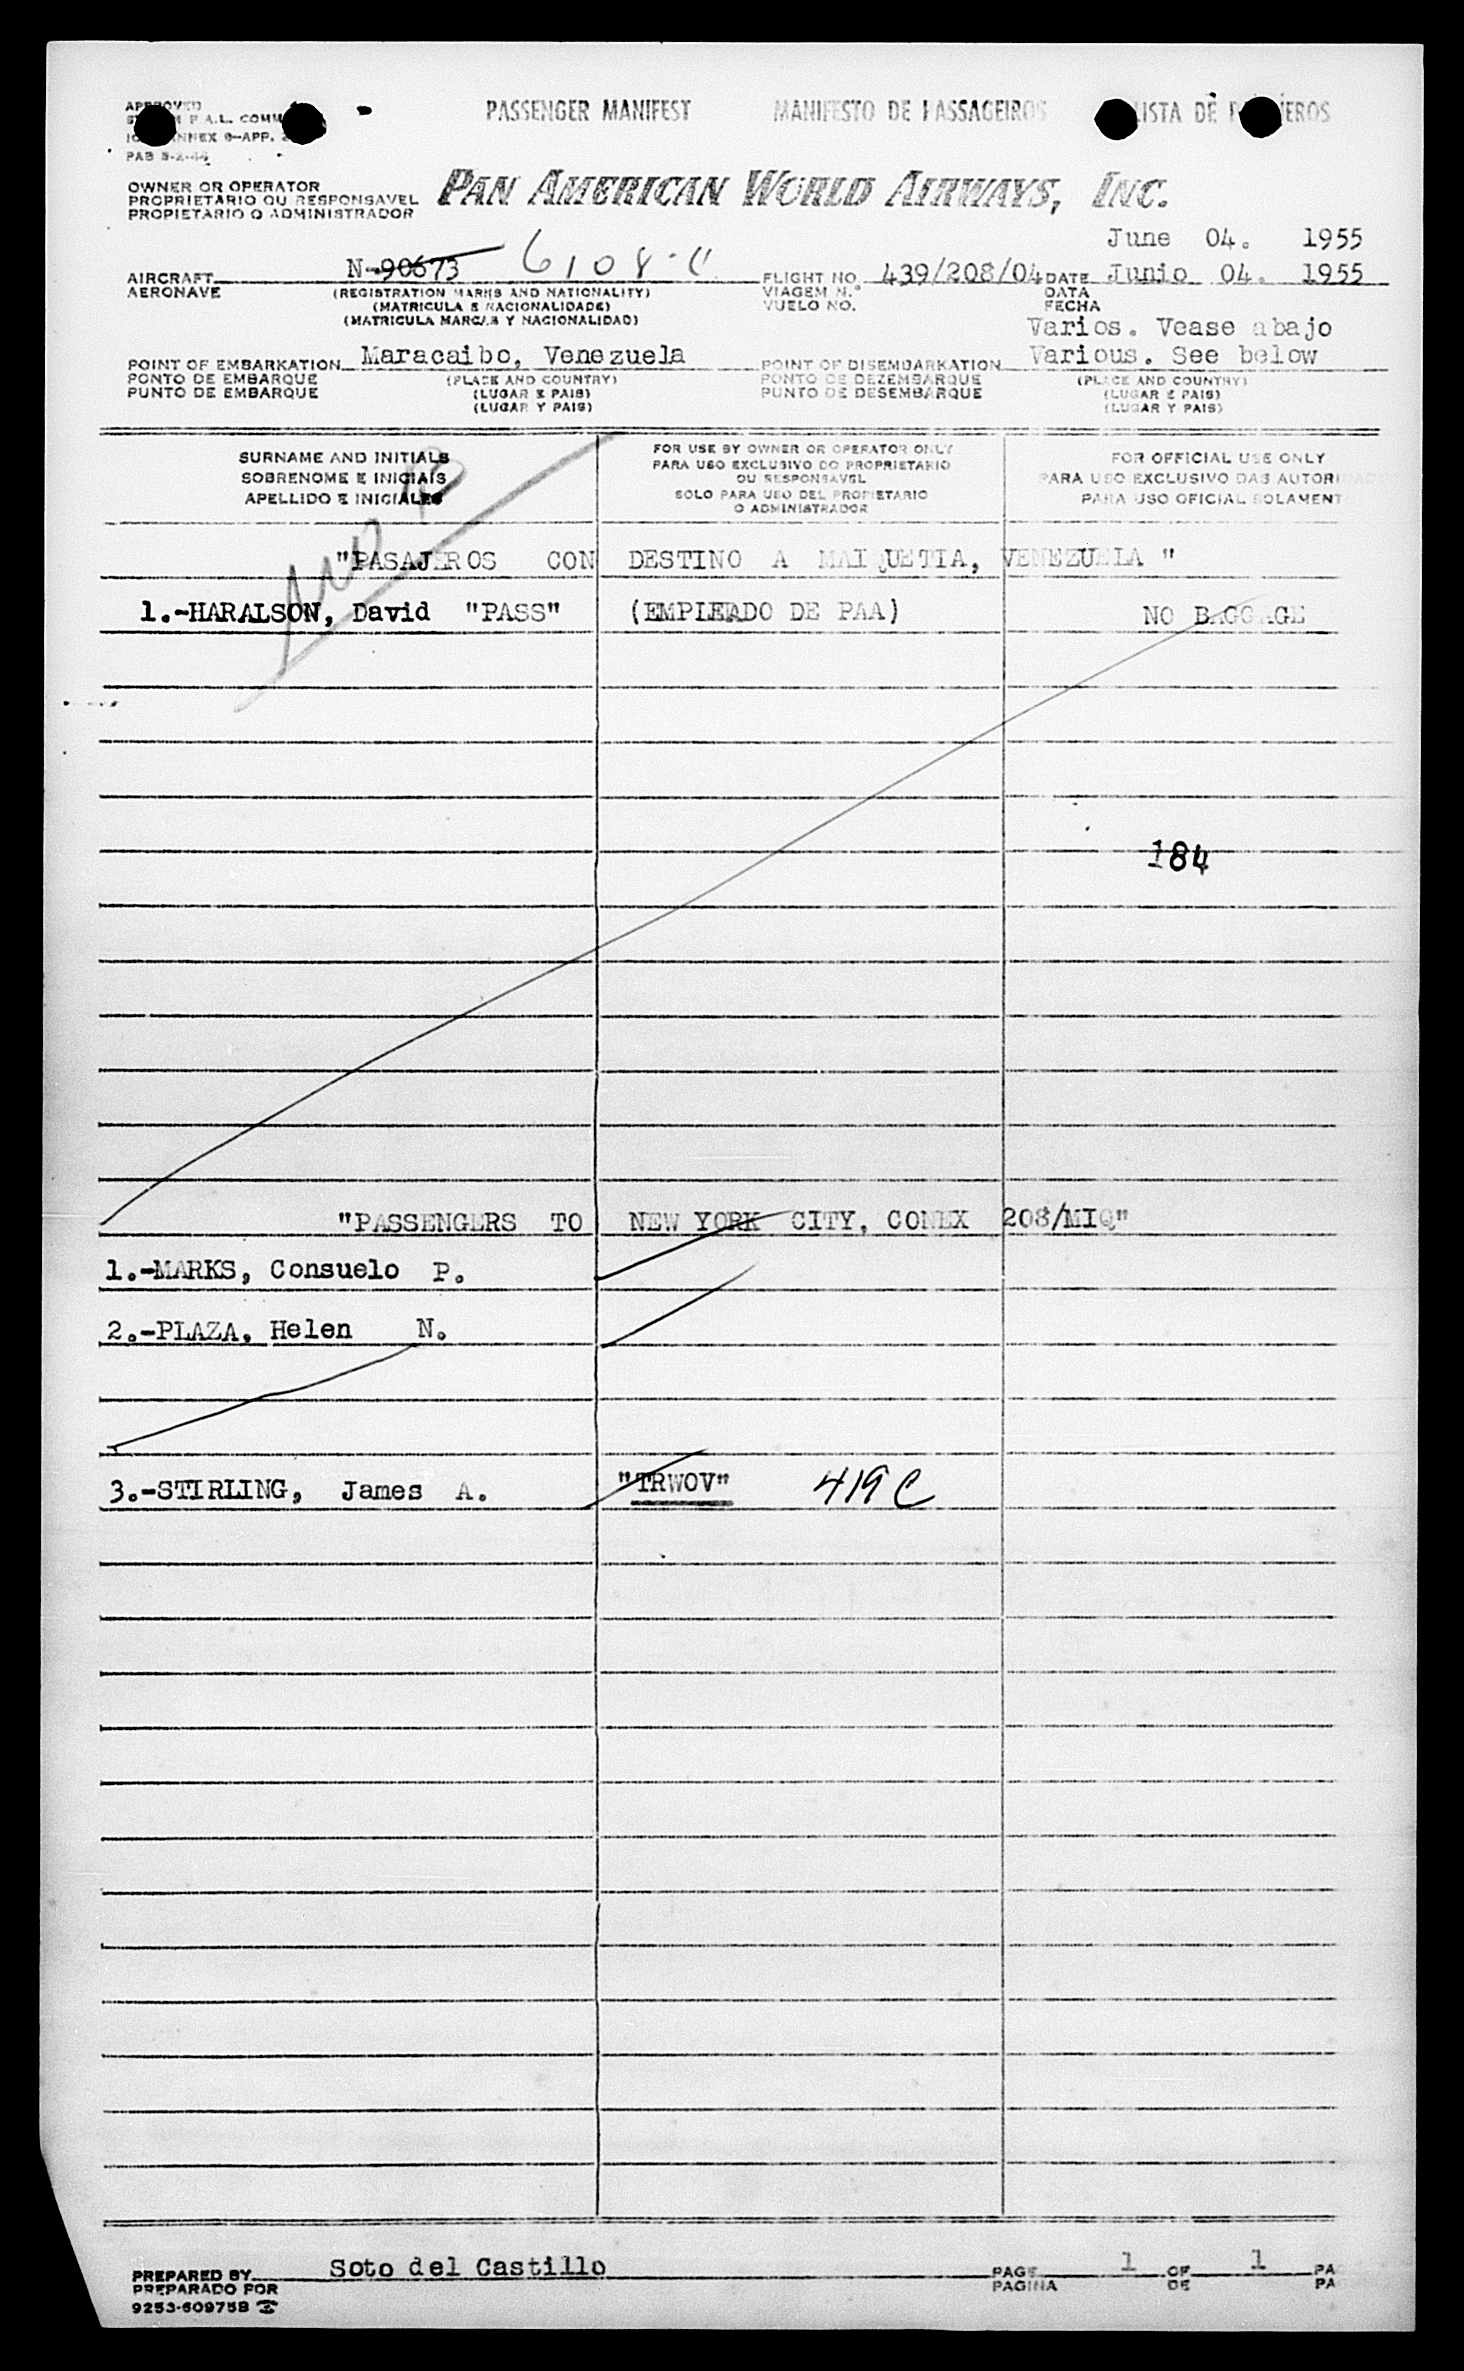 PASSENGER MANIFEST MANIFESTO DE PASSAGEIROS LISTA DE PASAJEROS
APPROVED
P.A.L. COMM
ANNEX 9-APP. 2
PAB 5-2-44
OWNER OR OPERATOR
PROPRIETARIO OU RESPONSAVEL
PROPIETARIO O ADMINISTRADOR
PAN AMERICAN WORLD AIRWAYS, INC.
June 04. 1955
AIRCRAFT N-90673 6108-C FLIGHT NO. 439/208/04 DATE Junio 04. 1955
AERONAVE (REGISTRATION MARKS AND NATIONALITY) VIAGEM N.º DATA
(MATRICULA E NACIONALIDADE) VUELO NO. FECHA
(MATRICULA MARCAS Y NACIONALIDAD)
Varios. Vease abajo
POINT OF EMBARKATION Maracaibo, Venezuela POINT OF DISEMBARKATION Various. See below
PONTO DE EMBARQUE (PLACE AND COUNTRY) PONTO DE DEZEMBARQUE (PLACE AND COUNTRY)
PUNTO DE EMBARQUE (LUGAR E PAIS) PUNTO DE DESEMBARQUE (LUGAR E PAIS)
(LUGAR Y PAIS) (LUGAR Y PAIS)
SURNAME AND INITIALS
SOBRENOME E INICIAIS
APELLIDO E INICIALES
FOR USE BY OWNER OR OPERATOR ONLY
PARA USO EXCLUSIVO DO PROPRIETARIO
OU RESPONSAVEL
SOLO PARA USO DEL PROPIETARIO
O ADMINISTRADOR
FOR OFFICIAL USE ONLY
PARA USO EXCLUSIVO DAS AUTORIDADES
PARA USO OFICIAL SOLAMENT
"PASAJEROS CON DESTINO A MAIQUETIA, VENEZUELA "
1.-HARALSON, David "PASS" (EMPLEADO DE PAA) NO BAGGAGE
184
"PASSENGERS TO NEW YORK CITY, CONEX 208/MIQ"
1.-MARKS, Consuelo P.
2.-PLAZA, Helen N.
3.-STIRLING, James A. "TRWOV" 419 C
PREPARED BY Soto del Castillo PAGE 1 OF 1 PA
PREPARADO POR PAGINA DE PA
9253-60975B